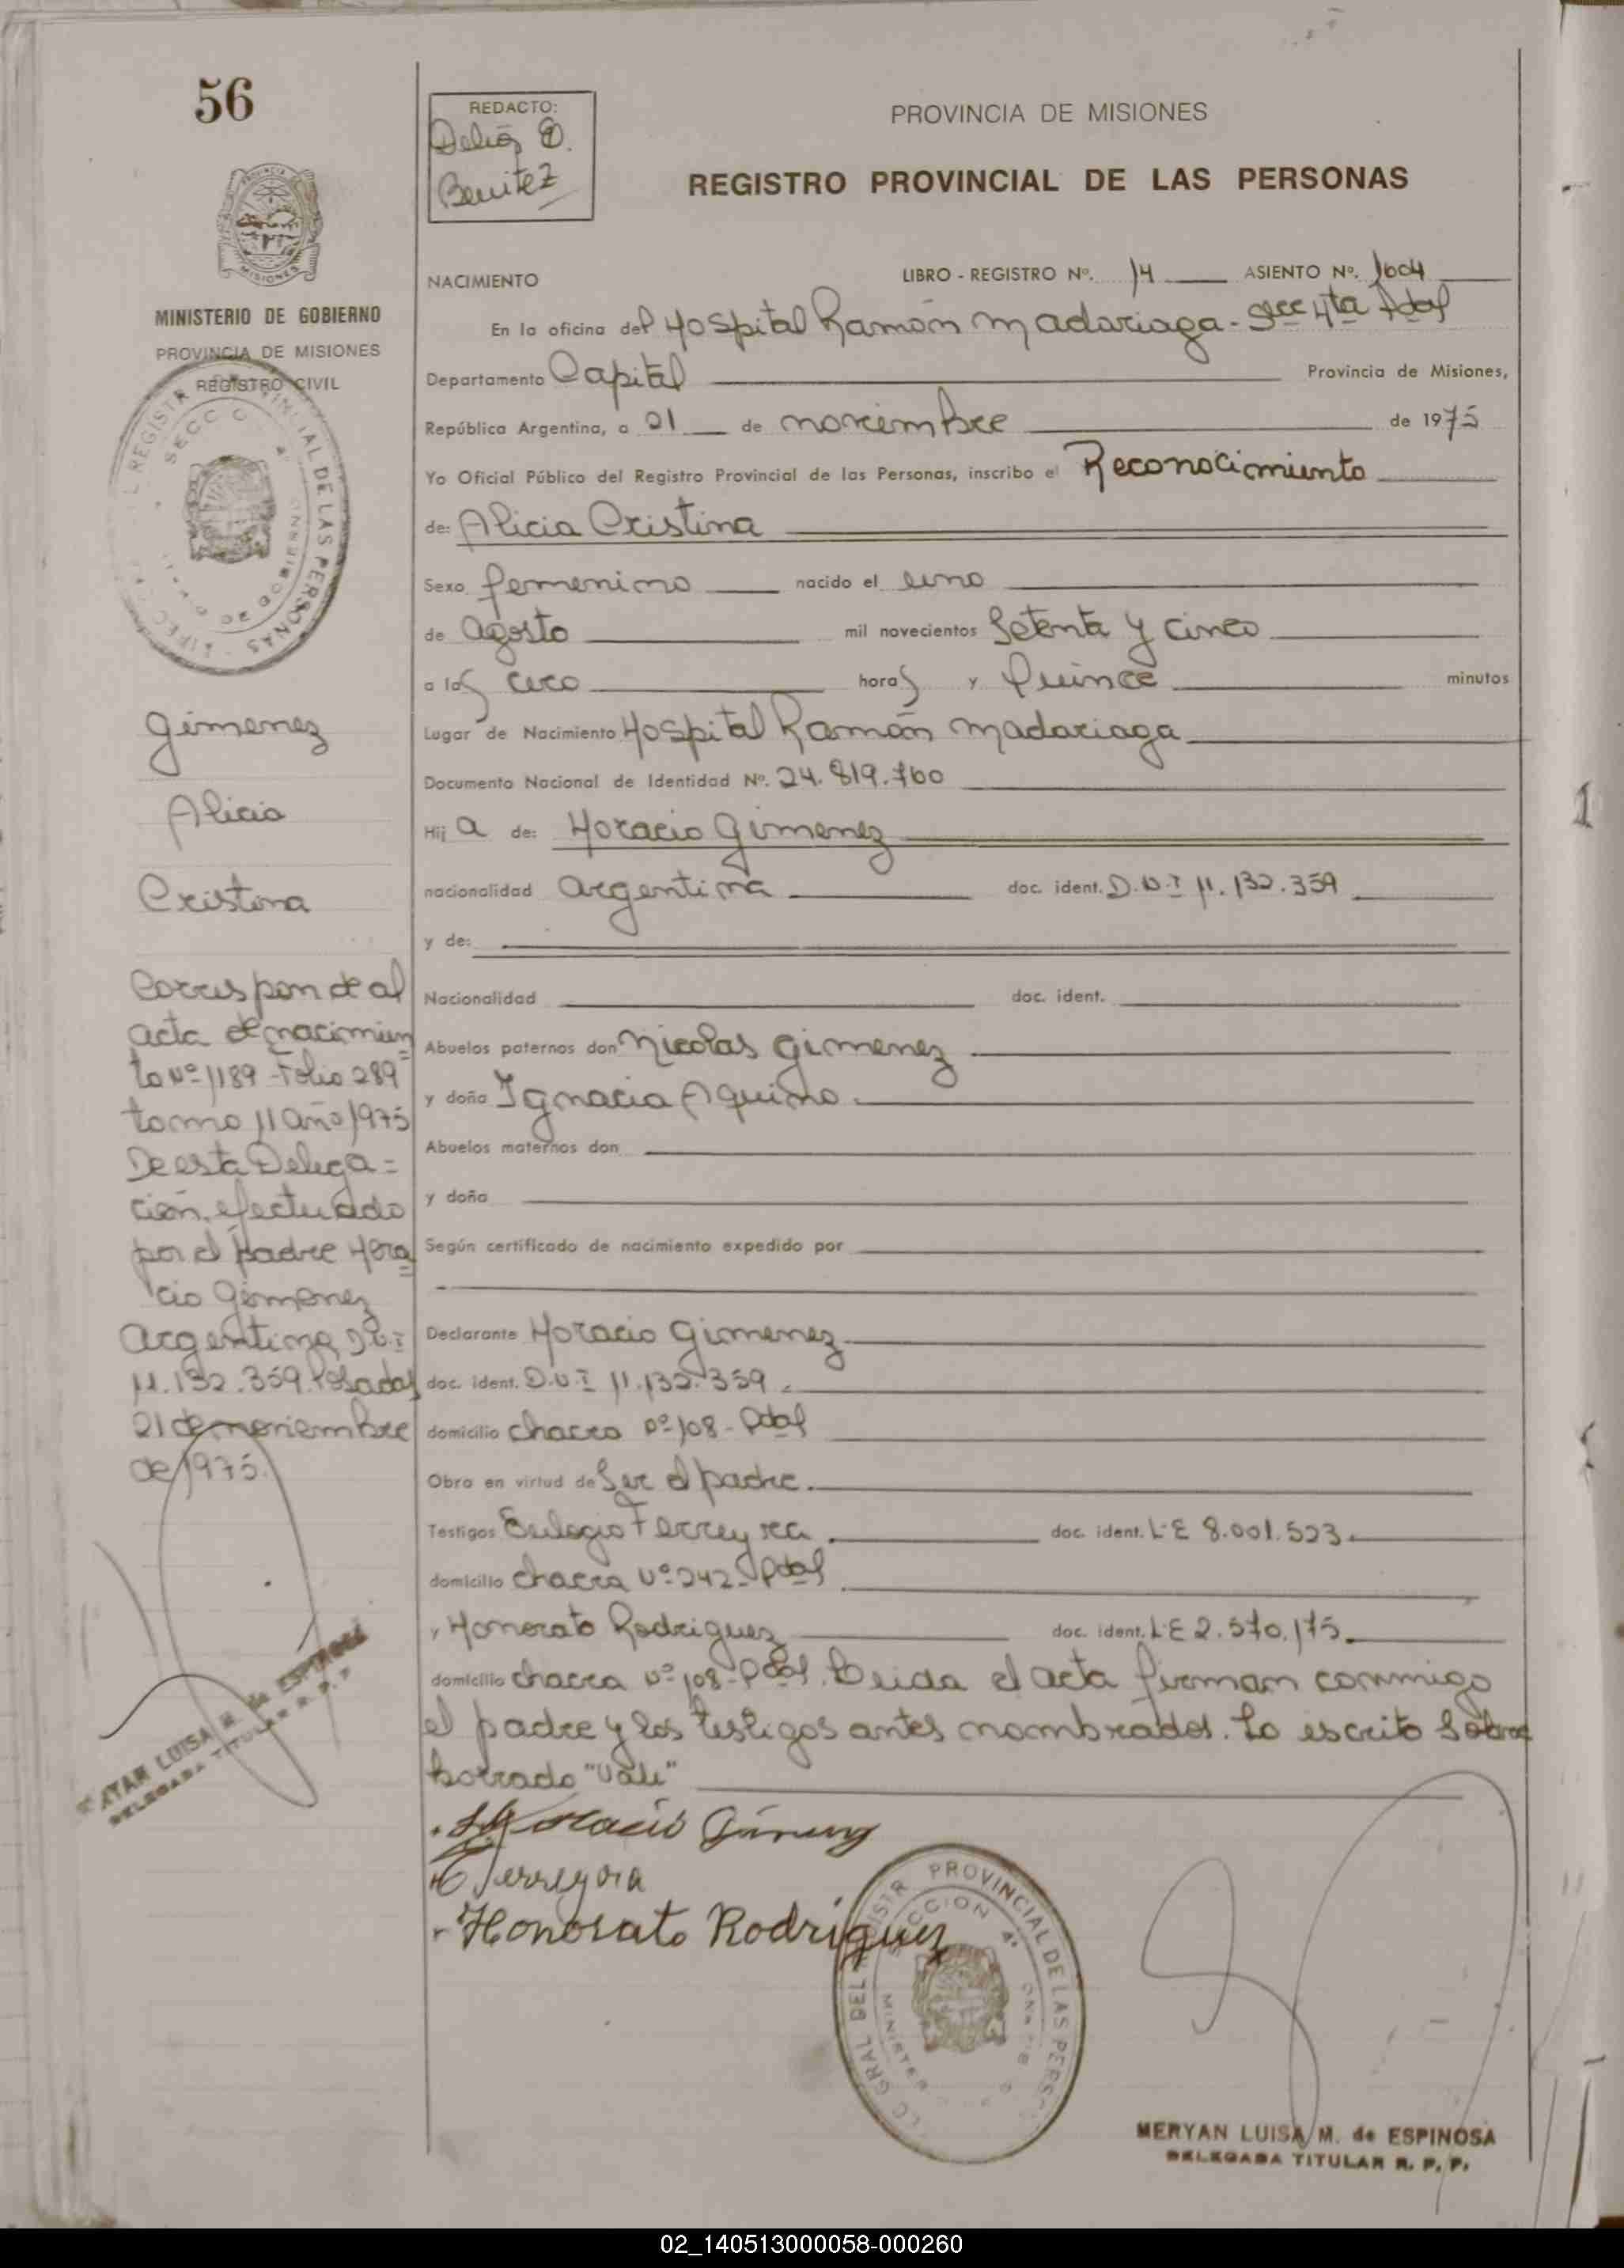 56
REDACTO:
Delia E.
Benitez
PROVINCIA DE MISIONES
REGISTRO PROVINCIAL DE LAS PERSONAS
MISIONES
MINISTERIO DE GOBIERNO
PROVINCIA DE MISIONES
REGISTRO CIVIL
Gimenez
Alicia
Cristina
Corresponde al
acta de nacimien=
to Nº 1189 - Folio 289
tomo 11 año 1975
De esta Delega=
ción, efectuado
por el padre Hora=
cio Gimenez
argentino, D.N.I
11.132.359. Posadas
21 de noviembre
de 1975.
MERYAN LUISA M. de ESPINOSA
DELEGADA TITULAR R. P. P.
NACIMIENTO LIBRO - REGISTRO Nº. 14 ASIENTO Nº. 1604
En la oficina del Hospital Ramón Madariaga - Secc 4ta Pdas
Departamento Capital Provincia de Misiones,
República Argentina, a 21 de noviembre de 1975
Yo Oficial Público del Registro Provincial de las Personas, inscribo el Reconocimiento
de: Alicia Cristina
Sexo femenino nacido el uno
de agosto mil novecientos Setenta y cinco
a las cero horas y Quince minutos
Lugar de Nacimiento Hospital Ramón Madariaga
Documento Nacional de Identidad Nº. 24.819.760
Hij a de: Horacio Gimenez
nacionalidad argentina doc. ident. D.N.I 11.132.359
y de:
Nacionalidad doc. ident.
Abuelos paternos don Nicolas Gimenez
y doña Ignacia Aquino.
Abuelos maternos don
y doña
Según certificado de nacimiento expedido por
Declarante Horacio Gimenez
doc. ident. D.N.I 11.132.359.
domicilio chacra Nº 108 - Pdas
Obra en virtud de Ser el padre.
Testigos Eulogio Ferreyra. doc. ident. L·E 8.001.523.
domicilio chacra Nº 242 - Pdas
y Honorato Rodriguez doc. ident. L·E 2.570.175.
domicilio chacra Nº 108 - Pdas. Leida el acta firman conmigo
el padre y los testigos antes nombrados. Lo escrito Sobre
borrado "Vale"
Horacio Gimenez
Ferreyra
Honorato Rodriguez
PROVINCIAL DE LAS PERS
SECCION 4ª
MERYAN LUISA M. de ESPINOSA
DELEGADA TITULAR R. P. P.
02_140513000058-000260